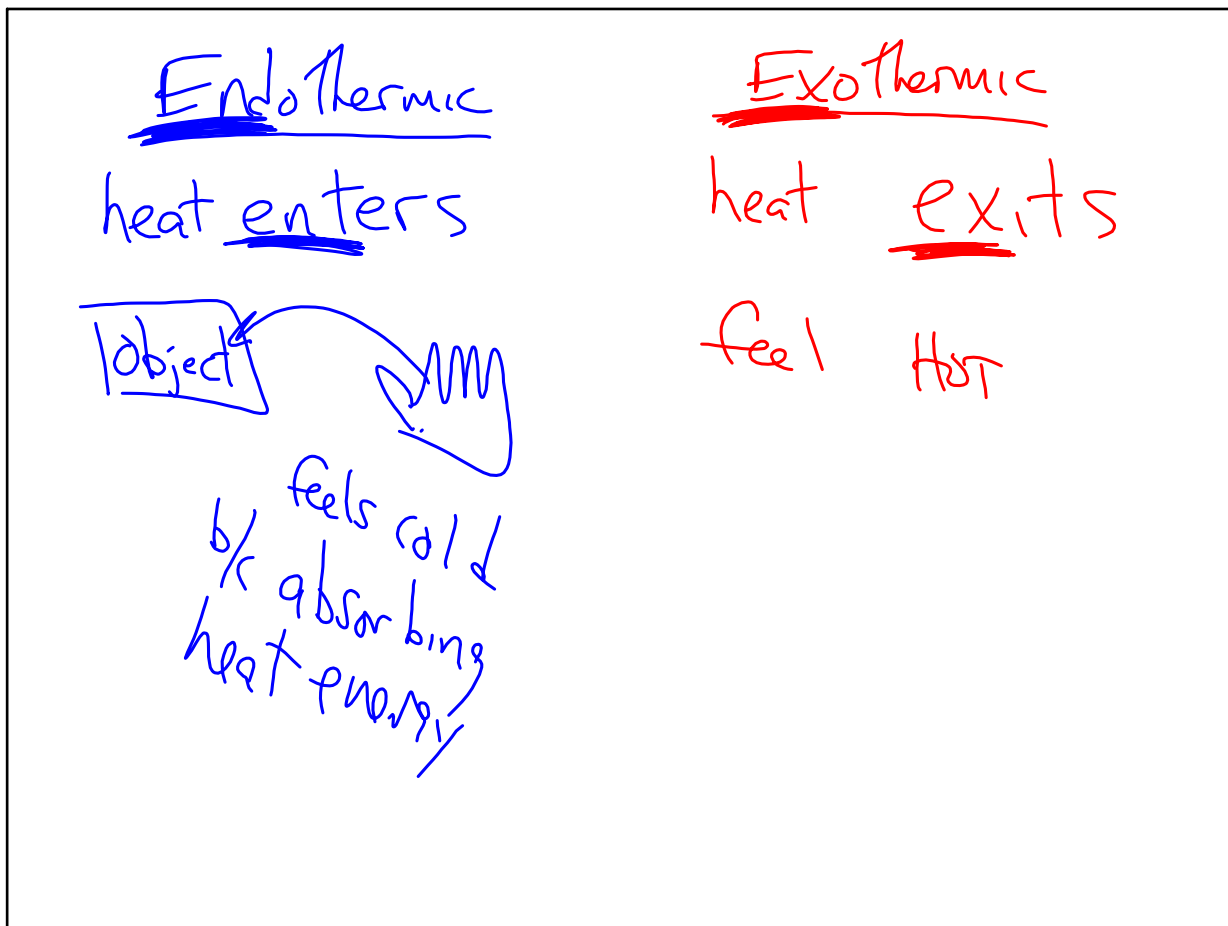 Endothermic
heat enters
Object
feels cold
b/c absorbing
heat energy
Exothermic
heat exits
feel HOT